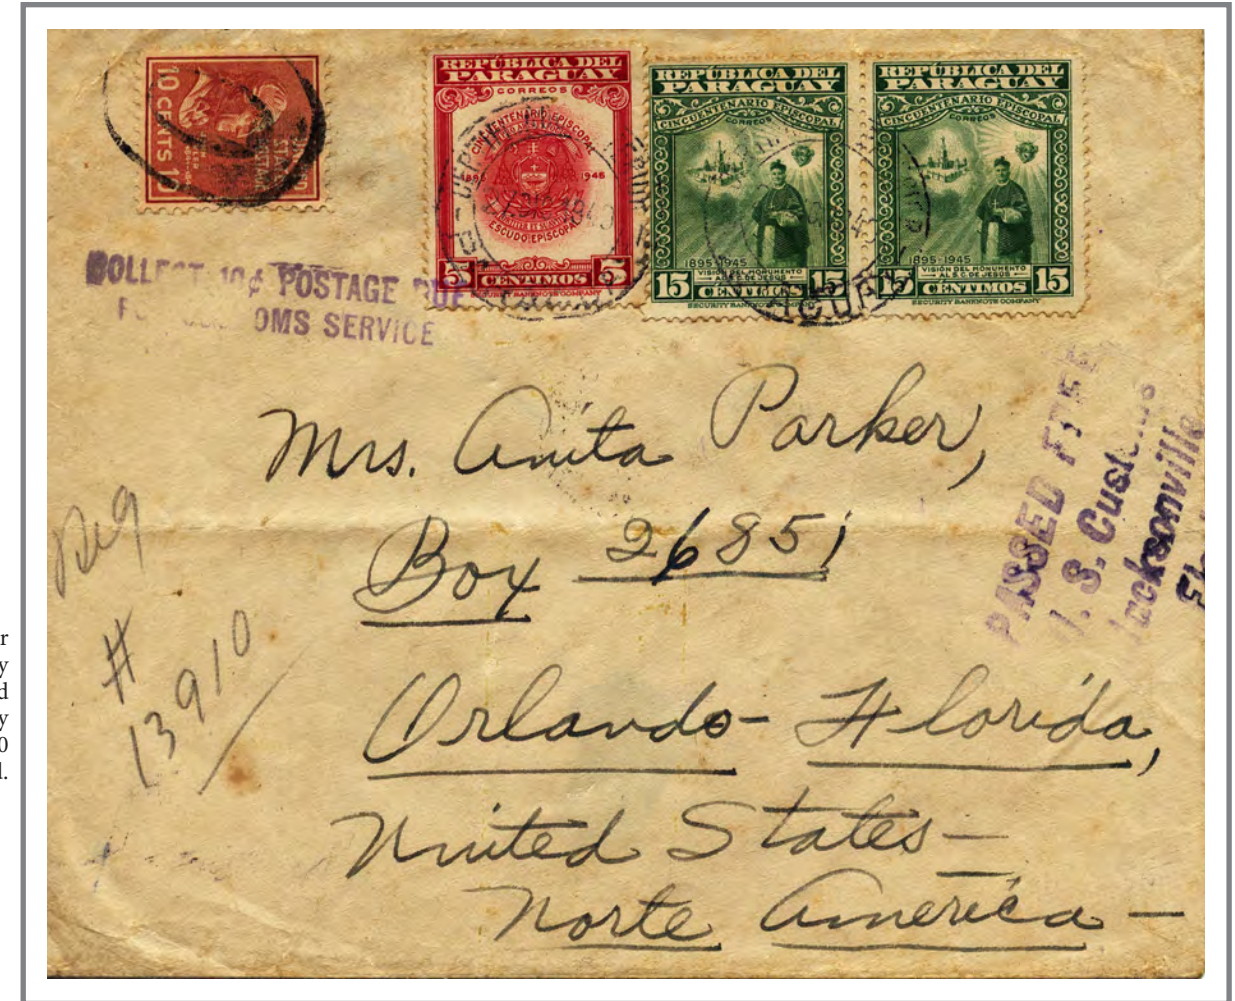 10 CENTS 10
REPÚBLICA DEL
PARAGUAY
CORREOS
CINCUENTENARIO EPISCOPAL
1945
ESCUDO EPISCOPAL
5 CENTIMOS 5
SECURITY BANKNOTE COMPANY
REPÚBLICA DEL
PARAGUAY
CINCUENTENARIO EPISCOPAL
CORREOS
1895-1945
VISIÓN DEL MONUMENTO
AL S.C. DE JESÚS
15 CENTIMOS 15
SECURITY BANKNOTE COMPANY
REPÚBLICA DEL
PARAGUAY
CINCUENTENARIO EPISCOPAL
CORREOS
1895-1945
VISIÓN DEL MONUMENTO
AL S.C. DE JESÚS
15 CENTIMOS 15
SECURITY BANKNOTE COMPANY
COLLECT 10¢ POSTAGE DUE
SERVICE
PASSED FREE
U. S. Customs
Jacksonville
Mrs. Anita Parker,
Box 2685,
Orlando - Florida,
United States -
Norte America -
Reg
#
13910
r
y
d
y
0
l.